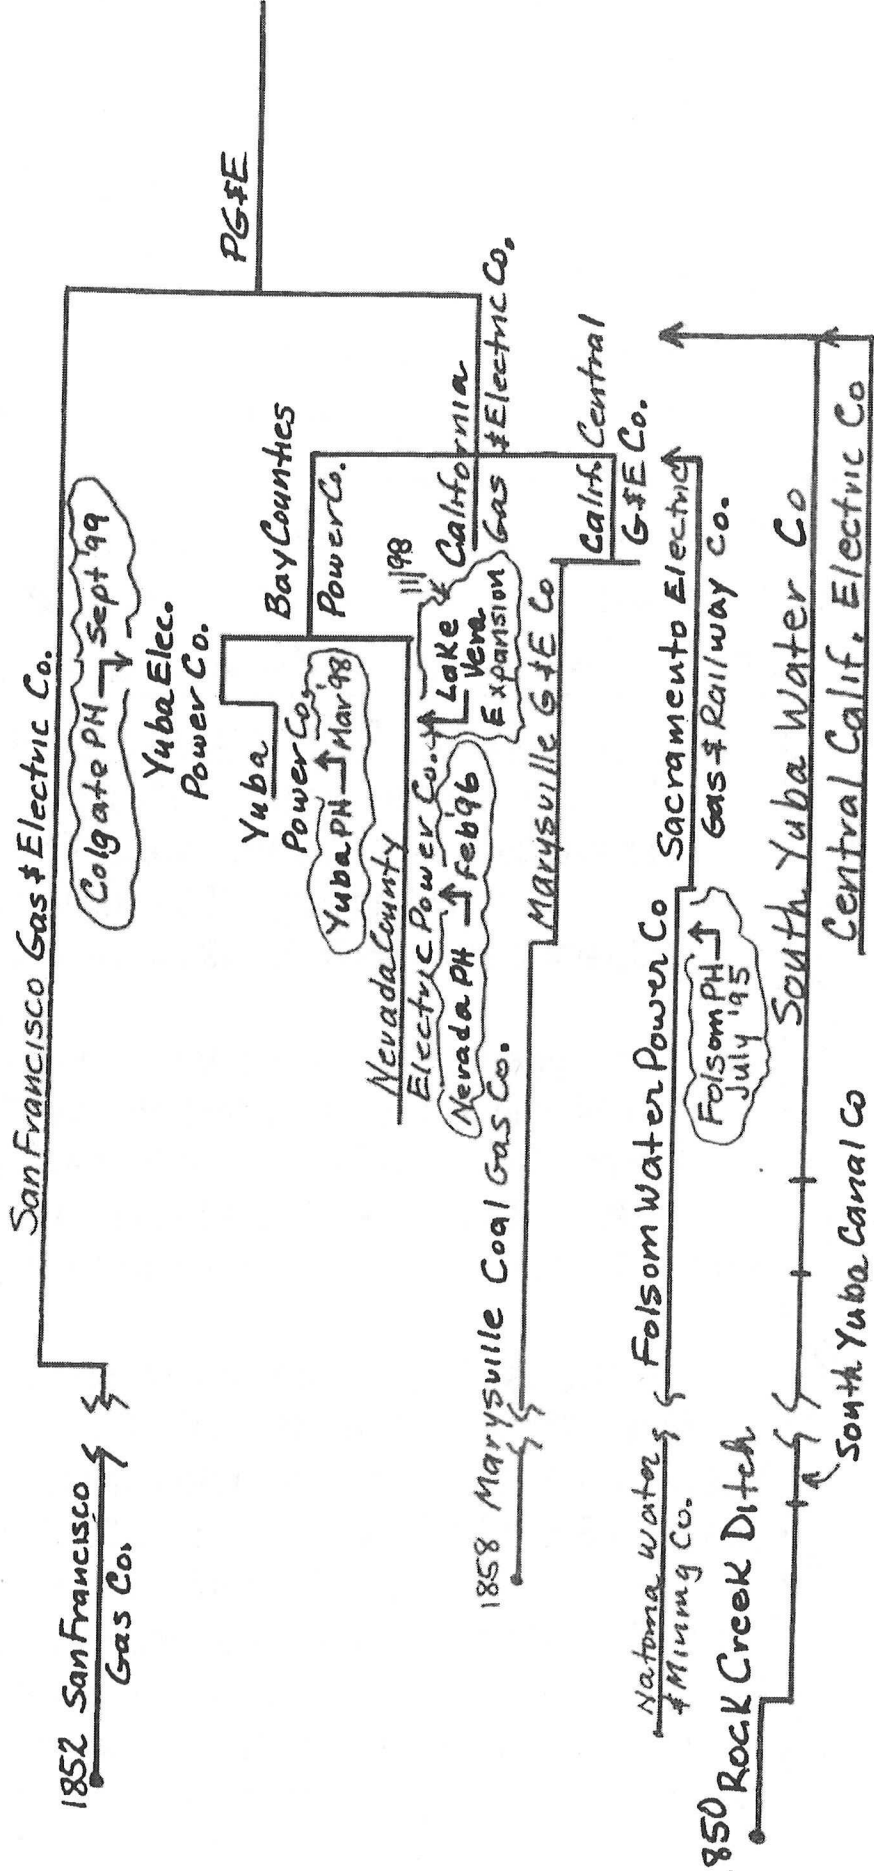 1852 San Francisco
Gas Co.
San Francisco Gas & Electric Co.
Colgate PH
Sept '99
Yuba Elec.
Power Co.
PG&E
Yuba
Power Co.
Yuba PH
Mar '98
Bay Counties
Power Co.
Nevada County
Electric Power Co.
Nevada PH
Feb '96
11/98
Lake
Vera
Expansion
California
Gas & Electric Co.
1858 Marysville Coal Gas Co.
Marysville G&E Co
Calif. Central
G&E Co.
Natoma Water
& Mining Co.
Folsom Water Power Co
Folsom PH
July '95
Sacramento Electric
Gas & Railway Co.
850 Rock Creek Ditch
South Yuba Canal Co
South Yuba Water Co
Central Calif. Electric Co